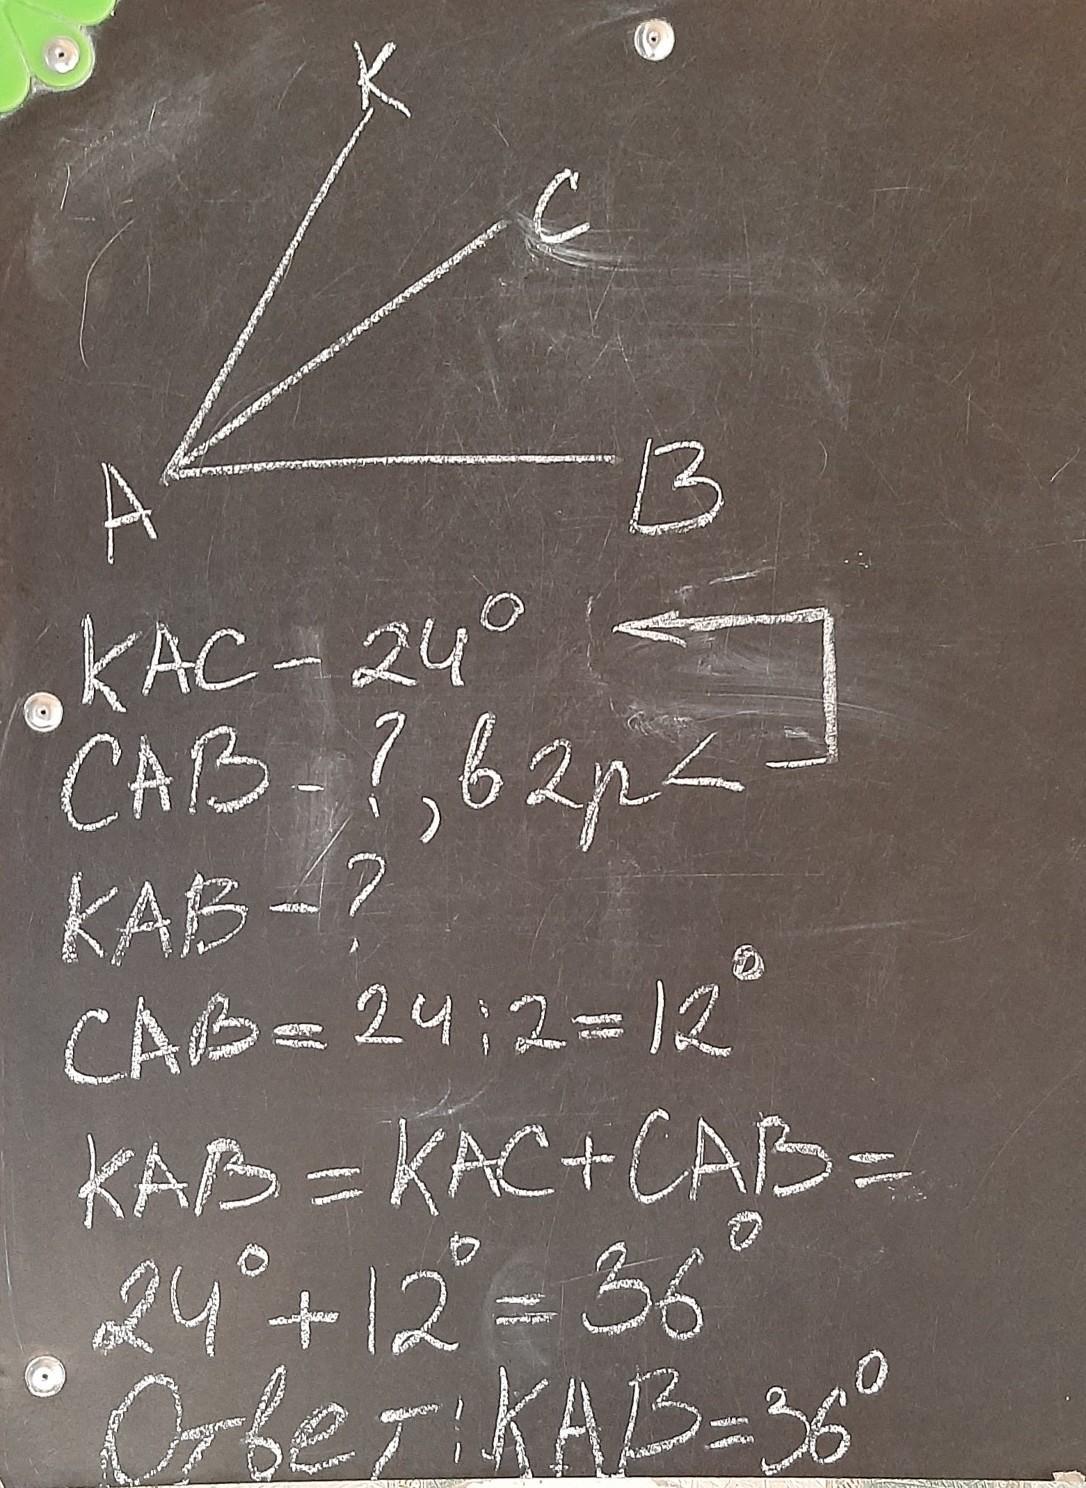 K
C
A
B
KAC - 24°
CAB - ?, в 2р <
KAB - ?
CAB = 24 : 2 = 12°
KAB = KAC + CAB =
24° + 12° = 36°
Ответ: KAB = 36°